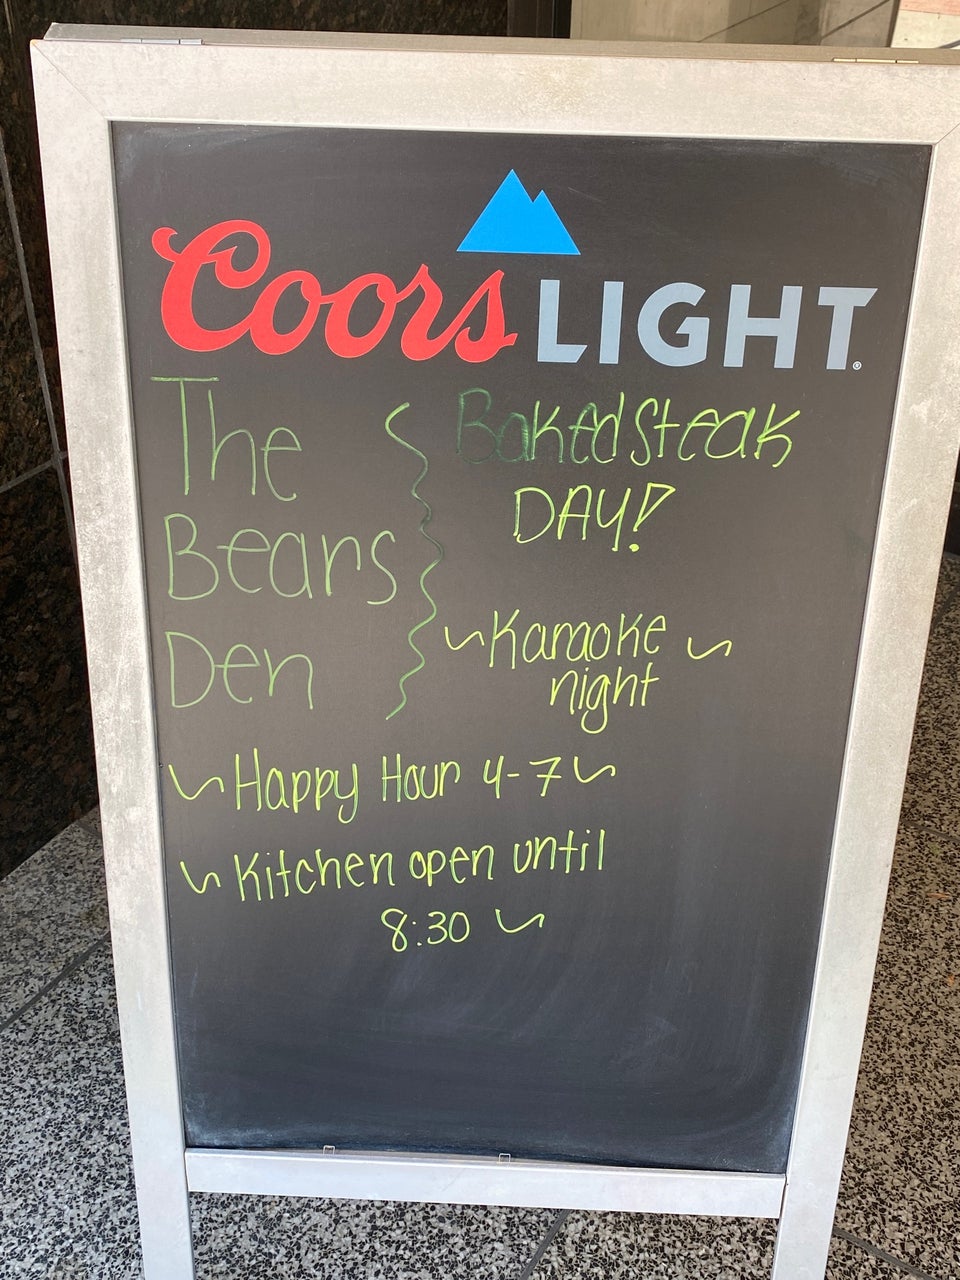 Coors LIGHT
The
Bears
Den
Baked Steak
DAY!
~Karaoke~
night
~Happy Hour 4-7~
~Kitchen open until
8:30~